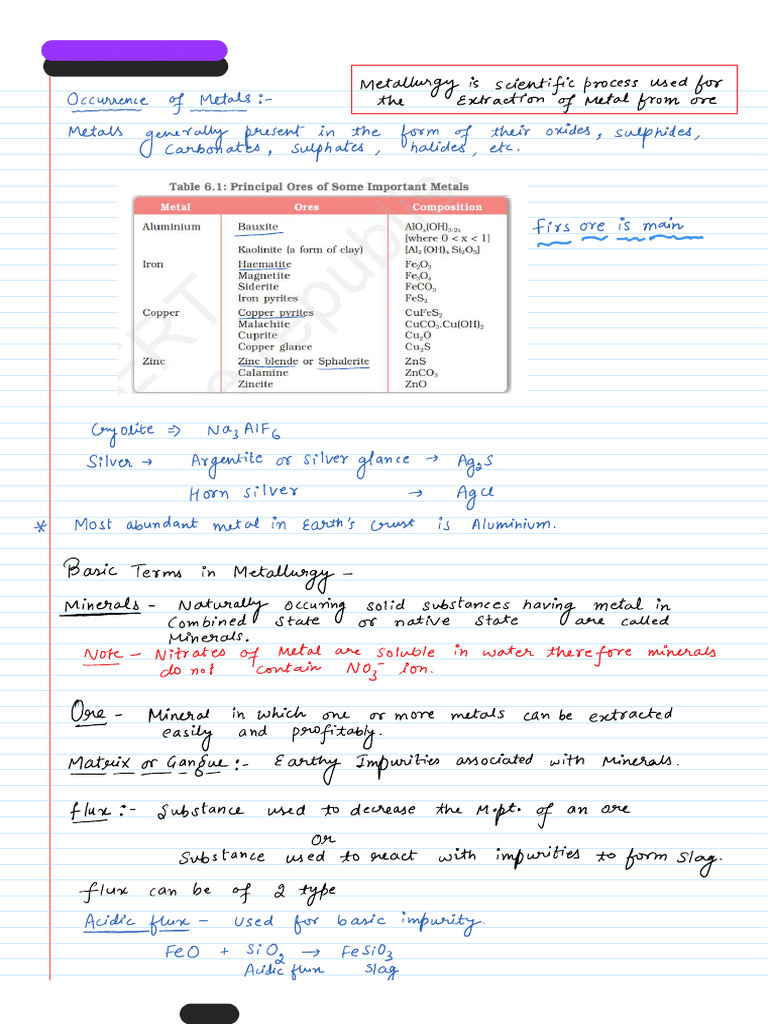 Metallurgy is scientific process used for
the Extraction of Metal from ore
Occurrence of Metals :-
Metals generally present in the form of their oxides, sulphides,
Carbonates, sulphates, halides, etc.
Table 6.1: Principal Ores of Some Important Metals
Metal Ores Composition
Aluminium Bauxite AlOₓ(OH)₃₋₂ₓ
[where 0 < x < 1]
Kaolinite (a form of clay) [Al₂(OH)₄ Si₂O₅]
Iron Haematite Fe₂O₃
Magnetite Fe₃O₄
Siderite FeCO₃
Iron pyrites FeS₂
Copper Copper pyrites CuFeS₂
Malachite CuCO₃.Cu(OH)₂
Cuprite Cu₂O
Copper glance Cu₂S
Zinc Zinc blende or Sphalerite ZnS
Calamine ZnCO₃
Zincite ZnO
firs ore is main
Cryolite ⇒ Na₃AlF₆
Silver → Argentite or silver glance → Ag₂S
Horn silver → AgCl
* Most abundant metal in Earth's Crust is Aluminium.
Basic Terms in Metallurgy -
Minerals - Naturally occuring solid substances having metal in
Combined state or native state are called
Minerals.
Note - Nitrates of Metal are soluble in water therefore minerals
do not contain NO₃⁻ ion.
Ore - Mineral in which one or more metals can be extracted
easily and profitably.
Matrix or Gangue :- Earthy Impurities associated with Minerals.
flux :- Substance used to decrease the M.pt. of an ore
or
Substance used to react with impurities to form slag.
flux can be of 2 type
Acidic flux - used for basic impurity.
FeO + SiO₂ → FeSiO₃
Acidic flux slag